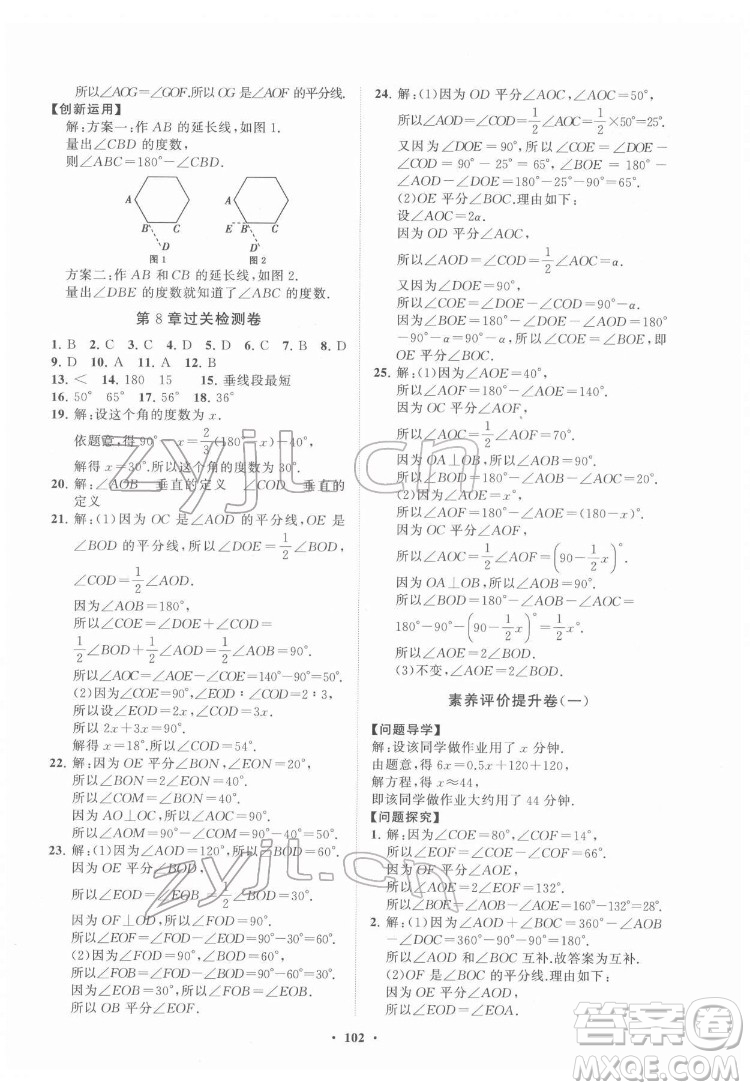 所以∠AOG=∠GOF.所以OG是∠AOF的平分线.
【创新运用】
解:方案一:作AB的延长线,如图1.
量出∠CBD的度数,
则∠ABC=180°-∠CBD.
A
B
C
D
图1
A
E
B
C
D
图2
方案二:作AB和CB的延长线,如图2.
量出∠DBE的度数就知道了∠ABC的度数.
第8章过关检测卷
1. B 2. C 3. C 4. C 5. B 6. D 7. B 8. D
9. D 10. A 11. A 12. B
13. < 14. 180 15 15. 垂线段最短
16. 50° 65° 17. 56° 18. 36°
19. 解:设这个角的度数为x.
依题意,得90°-x=2/3(180°-x)-40°,
解得x=30°.所以这个角的度数为30°.
20. 解:∠AOB 垂直的定义 ∠COD 垂直的
定义
21. 解:(1)因为OC是∠AOD的平分线,OE是
∠BOD的平分线,所以∠DOE=1/2∠BOD,
∠COD=1/2∠AOD.
因为∠AOB=180°,
所以∠COE=∠DOE+∠COD=
1/2∠BOD+1/2∠AOD=90°.
所以∠AOC=∠AOE-∠COE=140°-90°=50°.
(2)因为∠COE=90°,∠DOE∶∠COD=2∶3,
所以设∠DOE=2x,∠COD=3x.
所以2x+3x=90°.
解得x=18°.所以∠COD=54°.
22. 解:因为OE平分∠BON,∠EON=20°,
所以∠BON=2∠EON=40°.
所以∠AOC=∠BON=40°.
因为AO⊥OC,所以∠AOC=90°.
所以∠AOM=90°-∠MOC=90°-40°=50°.
23. 解:(1)因为∠AOC=120°,所以∠BOD=120°.
因为OE平分∠BOD,
所以∠EOD=∠EOB=1/2∠BOD=60°.
因为OF⊥OD,所以∠FOD=90°.
所以∠EOF=∠FOD-∠EOD=90°-60°=30°.
(2)因为∠FOD=90°,∠BOD=120°,
所以∠BOF=∠BOD-∠FOD=120°-90°=30°.
所以∠EOF=∠BOF=30°.
所以OB平分∠EOF.
24. 解:(1)因为OD平分∠AOC,∠AOC=50°,
所以∠AOD=∠COD=1/2∠AOC=1/2×50°=25°.
又因为∠DOE=90°,所以∠COE=∠DOE-
∠COD=90°-25°=65°,所以∠BOE=180°-
∠AOD-∠DOE=180°-25°-90°=65°.
(2)OE平分∠BOC.理由如下:
设∠AOC=2α.
因为OD平分∠AOC,
所以∠AOD=∠COD=1/2∠AOC=α.
又因为∠DOE=90°,
所以∠COE=∠DOE-∠COD=90°-α.
又因为∠BOE=180°-∠DOE-∠AOD=
180°-90°-α=90°-α,所以∠COE=∠BOE,
即OE平分∠BOC.
25. 解:(1)因为∠AOE=40°,
所以∠AOF=180°-∠AOE=140°.
因为OC平分∠AOF,
所以∠AOC=1/2∠AOF=70°.
因为OA⊥OB,所以∠AOB=90°.
所以∠BOD=180°-∠AOC-∠AOB=20°.
(2)因为∠AOE=x°,
所以∠AOF=180°-∠AOE=(180-x)°.
因为OC平分∠AOF,
所以∠AOC=1/2∠AOF=(90-1/2x)°.
因为OA⊥OB,所以∠AOB=90°.
所以∠BOD=180°-∠AOB-∠AOC=
180°-90°-(90-1/2x)°=1/2x°.
所以∠AOE=2∠BOD.
(3)不变,∠AOE=2∠BOD.
素养评价提升卷(一)
【问题导学】
解:设该同学做作业用了x分钟.
由题意,得6x=0.5x+120+120.
解方程,得x≈44.
即该同学做作业大约用了44分钟.
【问题探究】
1. 解:因为∠COE=80°,∠COF=14°,
所以∠EOF=∠COE-∠COF=66°.
因为OF平分∠AOE,
所以∠AOE=2∠EOF=132°.
所以∠BOE=180°-∠AOE=48°.
2. 解:(1)因为∠AOD+∠BOC=360°-∠AOB
-∠DOC=360°-90°-90°=180°,
所以∠AOD和∠BOC互补.故答案为互补.
(2)OF是∠BOC的平分线.理由如下:
因为OE平分∠AOD,
所以∠EOD=∠EOA.
• 102 •
zyjl.cn
zyjl.cn
答案圈
MXQE.COM